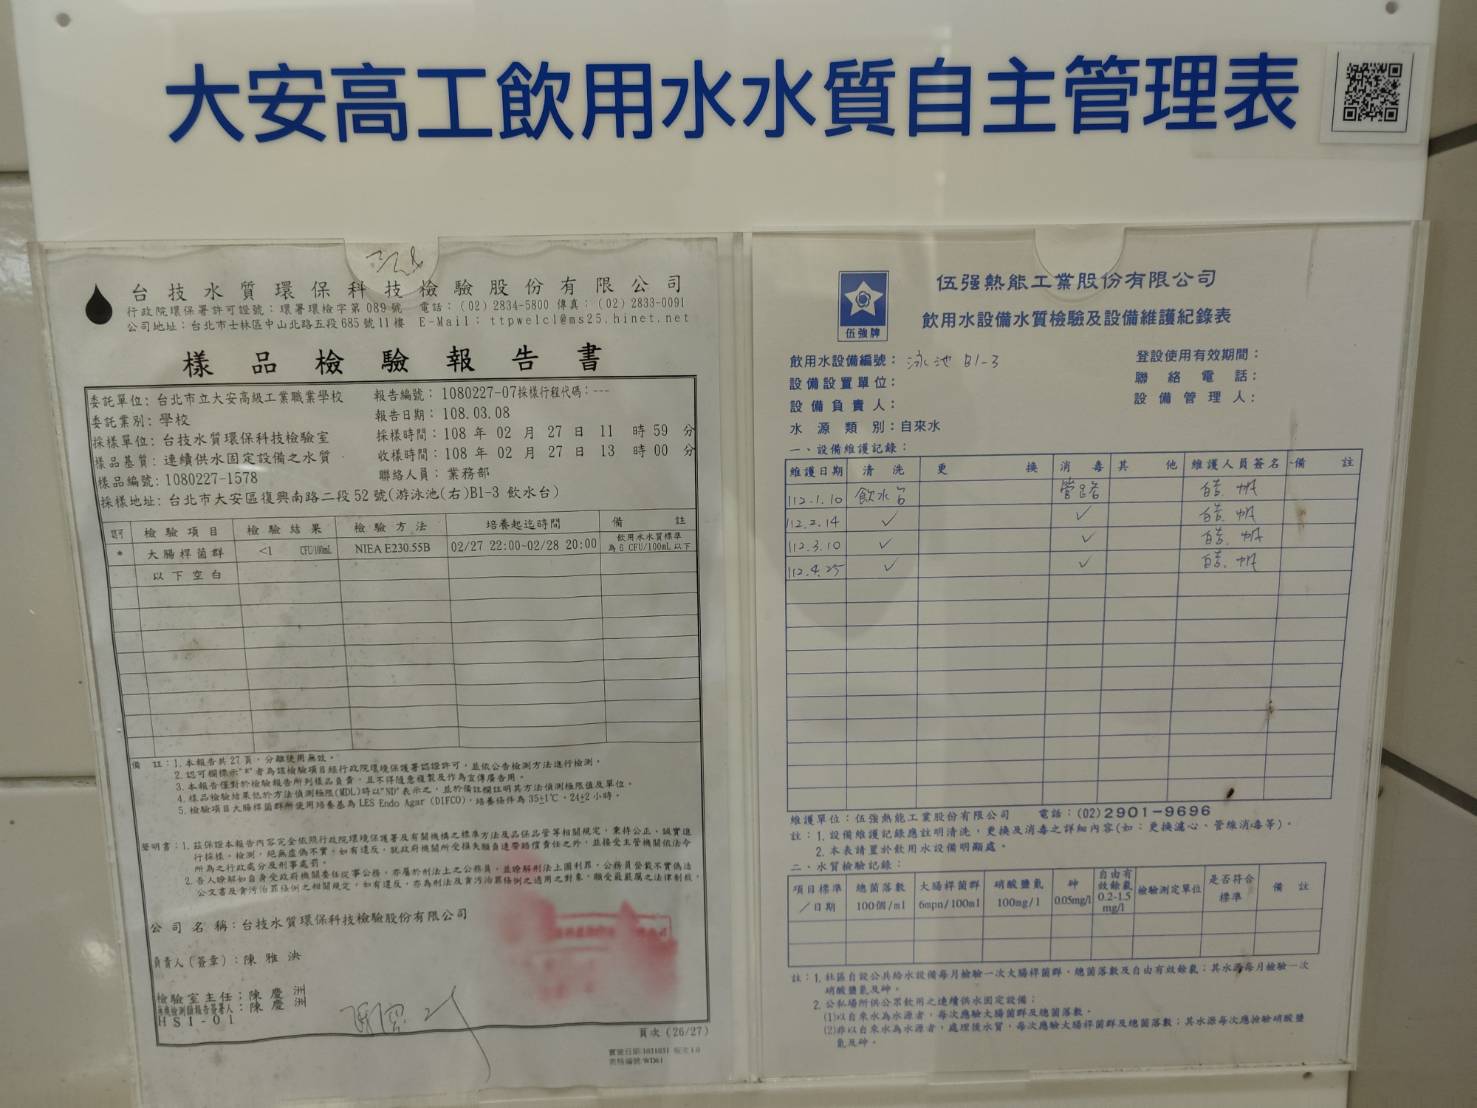 大安高工飲用水水質自主管理表
台技水質環保科技檢驗股份有限公司
行政院環保署許可證號：環署環檢字第089號 電話：(02)2834-5800 傳真：(02)2833-0091
公司地址：台北市士林區中山北路五段685號11樓 E-Mail：ttpwelcl@ms25.hinet.net
樣品檢驗報告書
委託單位：台北市立大安高級工業職業學校 報告編號：1080227-07採樣行程代碼：---
委託業別：學校 報告日期：108.03.08
採樣單位：台技水質環保科技檢驗室 採樣時間：108年02月27日11時59分
樣品基質：連續供水固定設備之水質 收樣時間：108年02月27日13時00分
樣品編號：1080227-1578 聯絡人員：業務部
採樣地址：台北市大安區復興南路二段52號(游泳池(右)B1-3飲水台)
檢驗項目 檢驗結果 檢驗方法 培養起迄時間 備註
* 大腸桿菌群 <1 CFU/100mL NIEA E230.55B 02/27 22:00~02/28 20:00 飲用水水質標準為6 CFU/100mL以下
以下空白
備註：1.本報告共27頁，分離使用無效。
2.認可欄標示"*"者為該檢驗項目經行政院環境保護署認證許可，並依公告檢測方法進行檢測。
3.本報告僅對於檢驗報告所列樣品負責，且不得隨意複製及作為宣傳廣告用。
4.樣品檢驗結果低於方法偵測極限(MDL)時以"ND"表示之，並於備註欄註明其方法偵測極限值及單位。
5.檢驗項目大腸桿菌群所使用培養基為LES Endo Agar (DIFCO)，培養條件為35±1℃，24±2小時。
聲明書：1.茲保證本報告內容完全依照行政院環境保護署及有關機構之標準方法及品保品管等相關規定，秉持公正、誠實進
行採樣，檢測，絕無虛偽不實，如有違反，就政府機關所受損失願負連帶賠償責任之外，並接受主管機關依法令
所為之行政處分及刑事處罰。
2.吾人瞭解如自身受政府機關委任從事公務，亦屬於刑法上之公務員，並瞭解刑法上圖利罪、公務員登載不實偽造
公文書及貪污治罪條例之相關規定，如有違反，亦為刑法及貪污治罪條例之適用之對象，願受最嚴厲之法律制裁。
公司名稱：台技水質環保科技檢驗股份有限公司
負責人(簽章)：陳雅泱
檢驗室主任：陳慶洲
報告簽署人：陳慶洲
HSI-01
頁次(26/27)
伍強牌
伍強熱能工業股份有限公司
飲用水設備水質檢驗及設備維護紀錄表
飲用水設備編號：泳池B1-3 登設使用有效期間：
設備設置單位： 聯絡電話：
設備負責人： 設備管理人：
水源類別：自來水
一、設備維護記錄：
維護日期 清洗 更換 消毒 其他 維護人員簽名 備註
112.1.10 飲水台 管路
112.2.14 ✓ ✓
112.3.10 ✓ ✓
112.4.25 ✓ ✓
維護單位：伍強熱能工業股份有限公司 電話：(02)2901-9696
註：1.設備維護記錄應註明清洗、更換及消毒之詳細內容(如：更換濾心、管線消毒等)。
2.本表請置於飲用水設備明顯處。
二、水質檢驗記錄：
項目標準／日期 總菌落數100個/ml 大腸桿菌群6mpn/100ml 硝酸鹽氮100mg/l 砷0.05mg/l 自由有效餘氯0.2-1.5mg/l 檢驗測定單位 是否符合標準 備註
註：1.社區自設公共給水設備每月檢驗一次大腸桿菌群、總菌落數及自由有效餘氯；其水源每月檢驗一次
硝酸鹽氮及砷。
2.公私場所供公眾飲用之連續供水固定設備：
(1)以自來水為水源者，每次應驗大腸桿菌群及總菌落數。
(2)非以自來水為水源者，處理後水質，每次應驗大腸桿菌群及總菌落數；其水源每次應檢驗硝酸鹽
氮及砷。